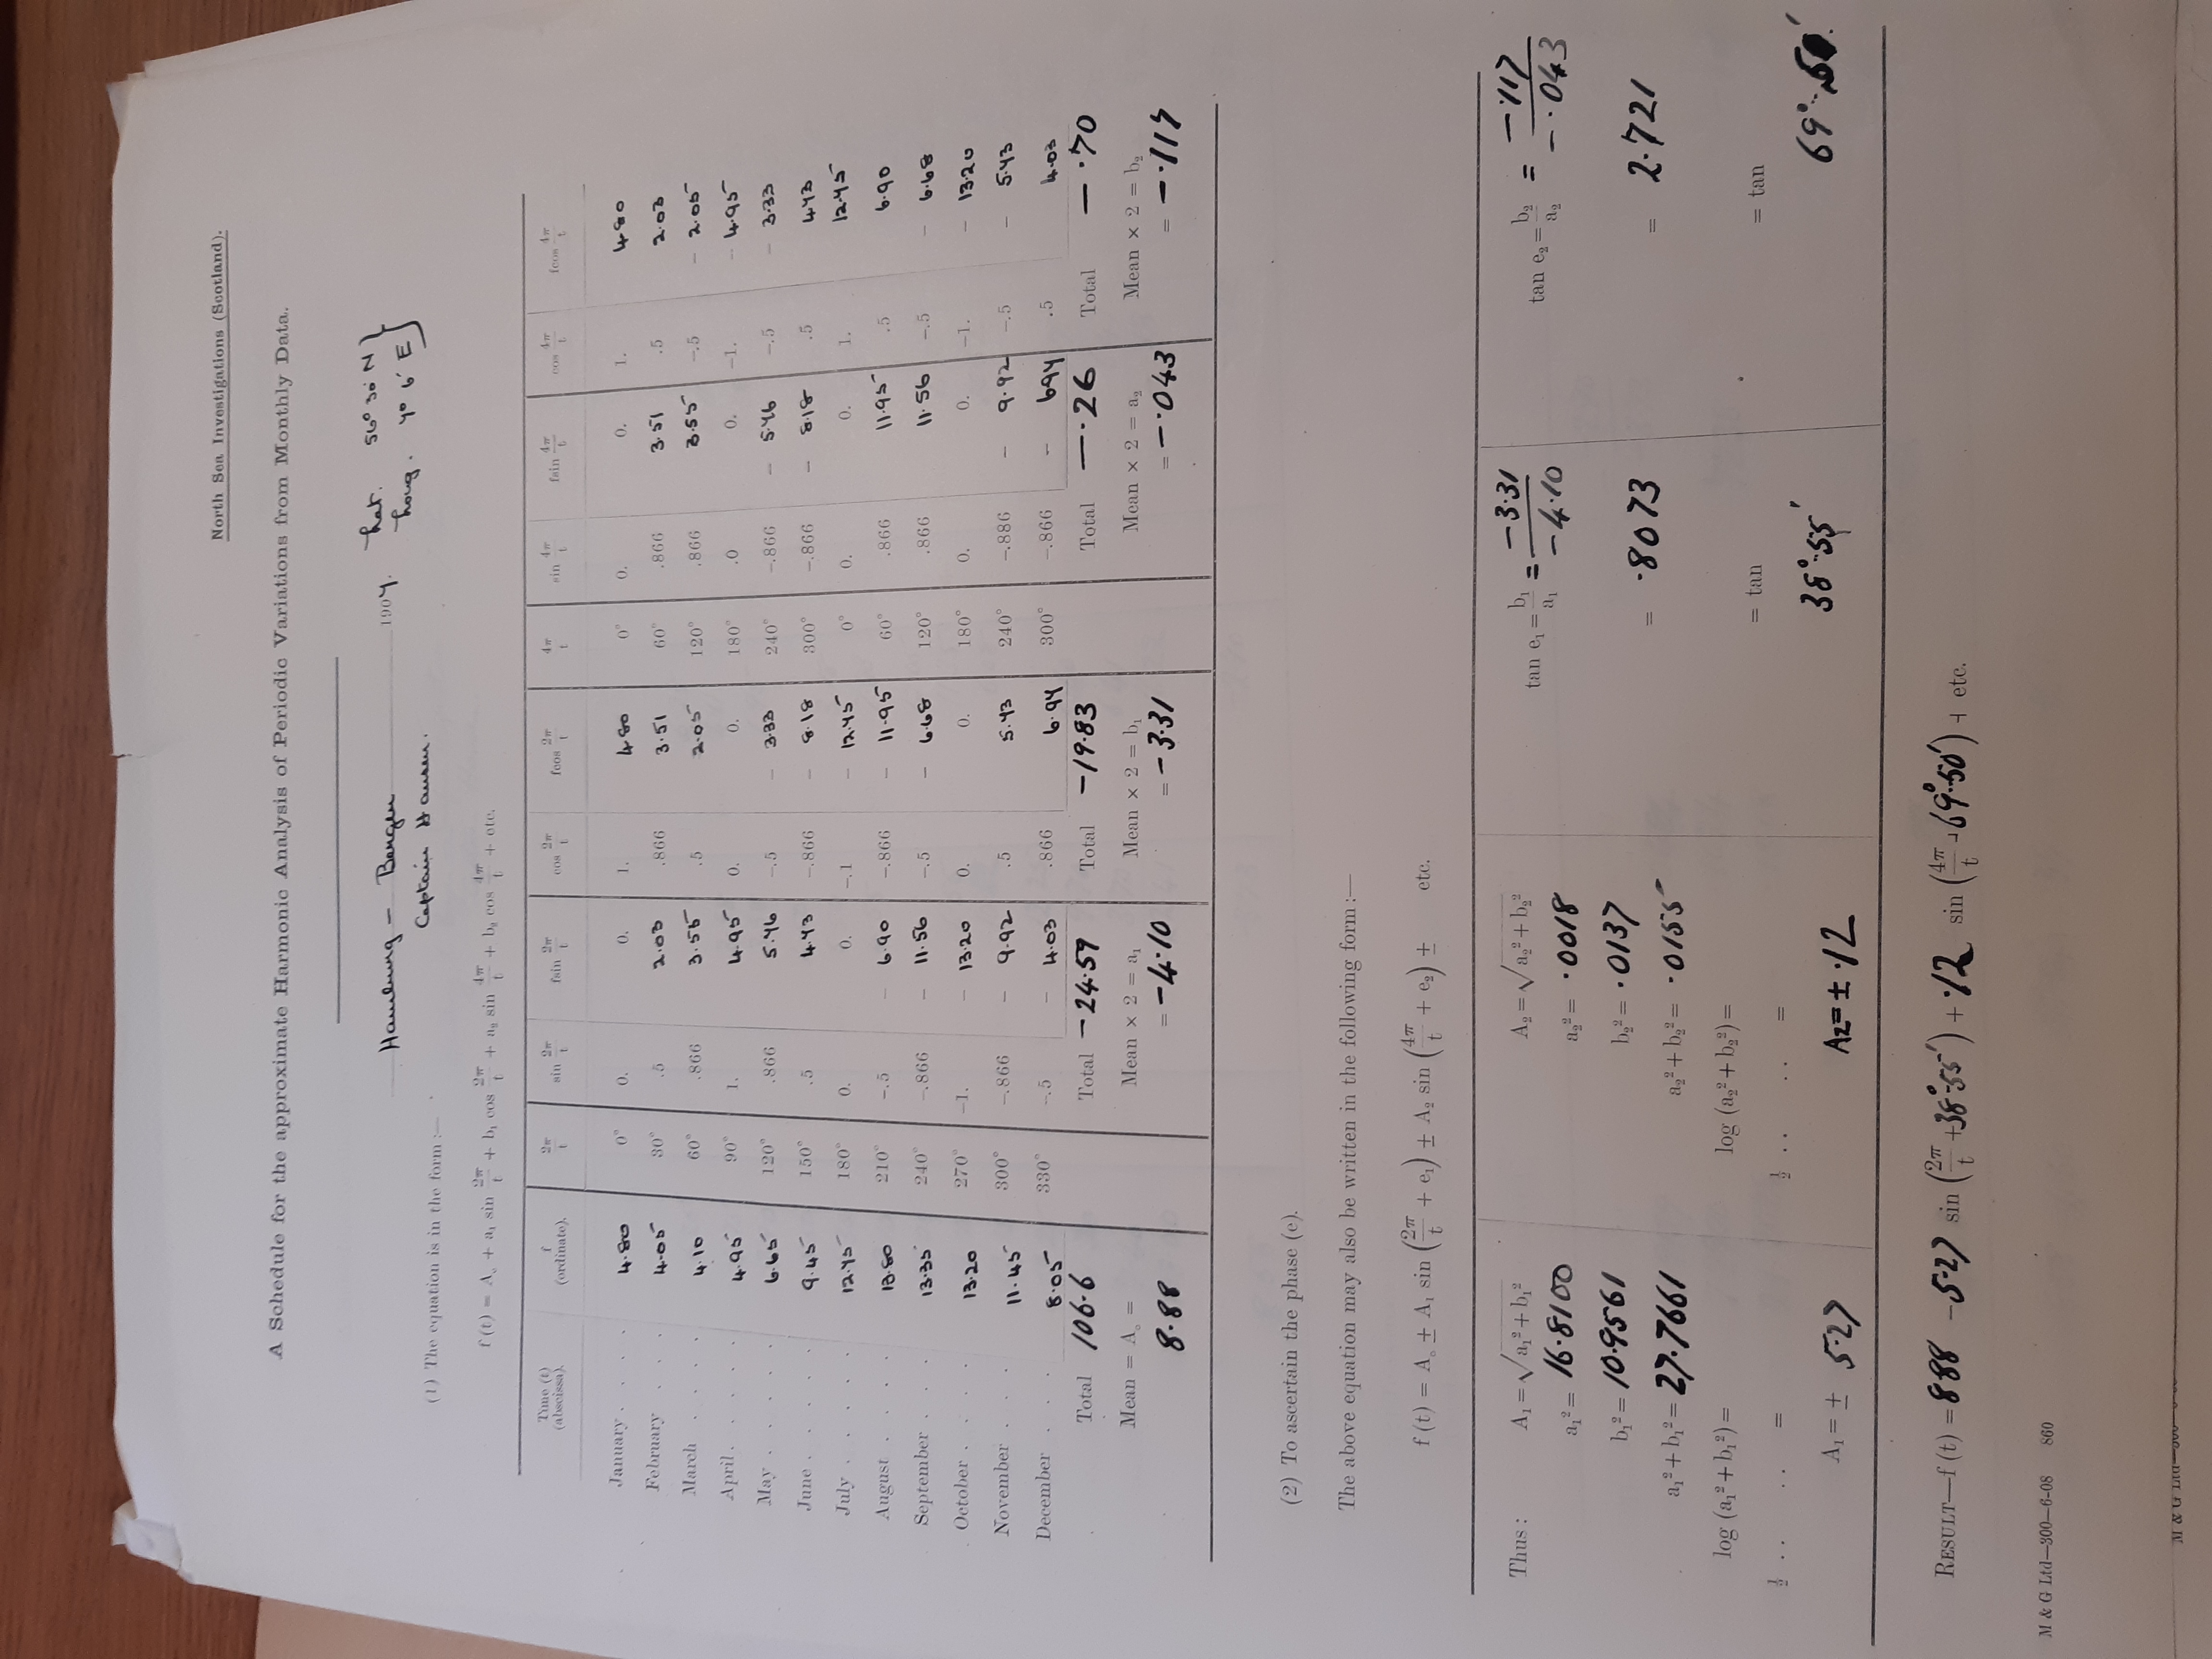 North Sea Investigations (Scotland).
A Schedule for the approximate Harmonic Analysis of Periodic Variations from Monthly Data.
Hamburg — Bergen 1907. Lat. 56° 30' N }
Captain Hansen. Long. 7° 6' E }
(1) The equation is in the form :—
f (t) = A₀ + a₁ sin 2π/t + b₁ cos 2π/t + a₂ sin 4π/t + b₂ cos 4π/t + etc.
Time (t) (abscissa). f (ordinate). 2π/t sin 2π/t fsin 2π/t cos 2π/t fcos 2π/t 4π/t sin 4π/t fsin 4π/t cos 4π/t fcos 4π/t
January . . . . 4.80 0° 0. 0. 1. 4.80 0° 0. 0. 1. 4.80
February . . . 4.05 30° .5 2.03 .866 3.51 60° .866 3.51 .5 2.03
March . . . . 4.10 60° .866 3.55 .5 2.05 120° .866 3.55 –.5 – 2.05
April . . . . . 4.95 90° 1. 4.95 0. 0. 180° .0 0. –1. – 4.95
May . . . . . 6.65 120° .866 5.76 –.5 – 3.33 240° –.866 – 5.76 –.5 – 3.33
June . . . . . 9.45 150° .5 4.73 –.866 – 8.18 300° –.866 – 8.18 .5 4.73
July . . . . . 12.75 180° 0. 0. –.1 – 12.75 0° 0. 0. 1. 12.75
August . . . . 13.80 210° –.5 – 6.90 –.866 – 11.95 60° .866 11.95 .5 6.90
September . . . 13.35 240° –.866 – 11.56 –.5 – 6.68 120° .866 11.56 –.5 – 6.68
October . . . . 13.20 270° –1. – 13.20 0. 0. 180° 0. 0. –1. – 13.20
November . . . 11.45 300° –.866 – 9.92 .5 5.73 240° –.886 – 9.92 –.5 – 5.73
December . . . 8.05 330° –.5 – 4.03 .866 6.97 300° –.866 – 697 .5 4.03
Total 106.6 Total –24.59 Total –19.83 Total –.26 Total –.70
Mean = A₀ = Mean × 2 = a₁ Mean × 2 = b₁ Mean × 2 = a₂ Mean × 2 = b₂
8.88 = –4.10 = –3.31 = –.043 = –.117
(2) To ascertain the phase (e).
The above equation may also be written in the following form :—
f (t) = A₀ ± A₁ sin (2π/t + e₁) ± A₂ sin (4π/t + e₂) ± etc.
Thus : A₁ = √a₁² + b₁² A₂ = √a₂² + b₂² tan e₁ = b₁/a₁ = –3.31/–4.10 tan e₂ = b₂/a₂ = –.117/–.043
a₁² = 16.8100 a₂² = .0018
b₁² = 10.9561 b₂² = .0137 = .8073 = 2.721
a₁² + b₁² = 27.7661 a₂² + b₂² = .0155
log (a₁² + b₁²) = log (a₂² + b₂²) =
= tan = tan
½ . . . . = ½ . . . . =
A₁ = ± 5.27 A₂ = ± .12 38°.55' 69°.50'
RESULT—f (t) = 888 – 5.27 sin (2π/t + 38°.55') + .12 sin (4π/t + 69°.50') + etc.
M & G Ltd—300—6-08 860